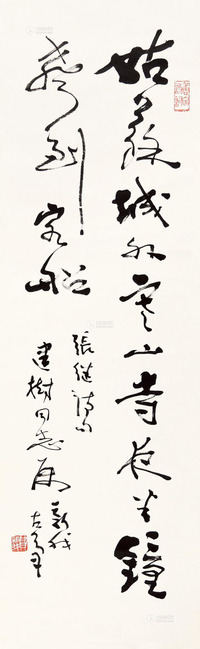 姑苏城外寒山寺夜半钟
声到客船
張继诗句
建樹同志属